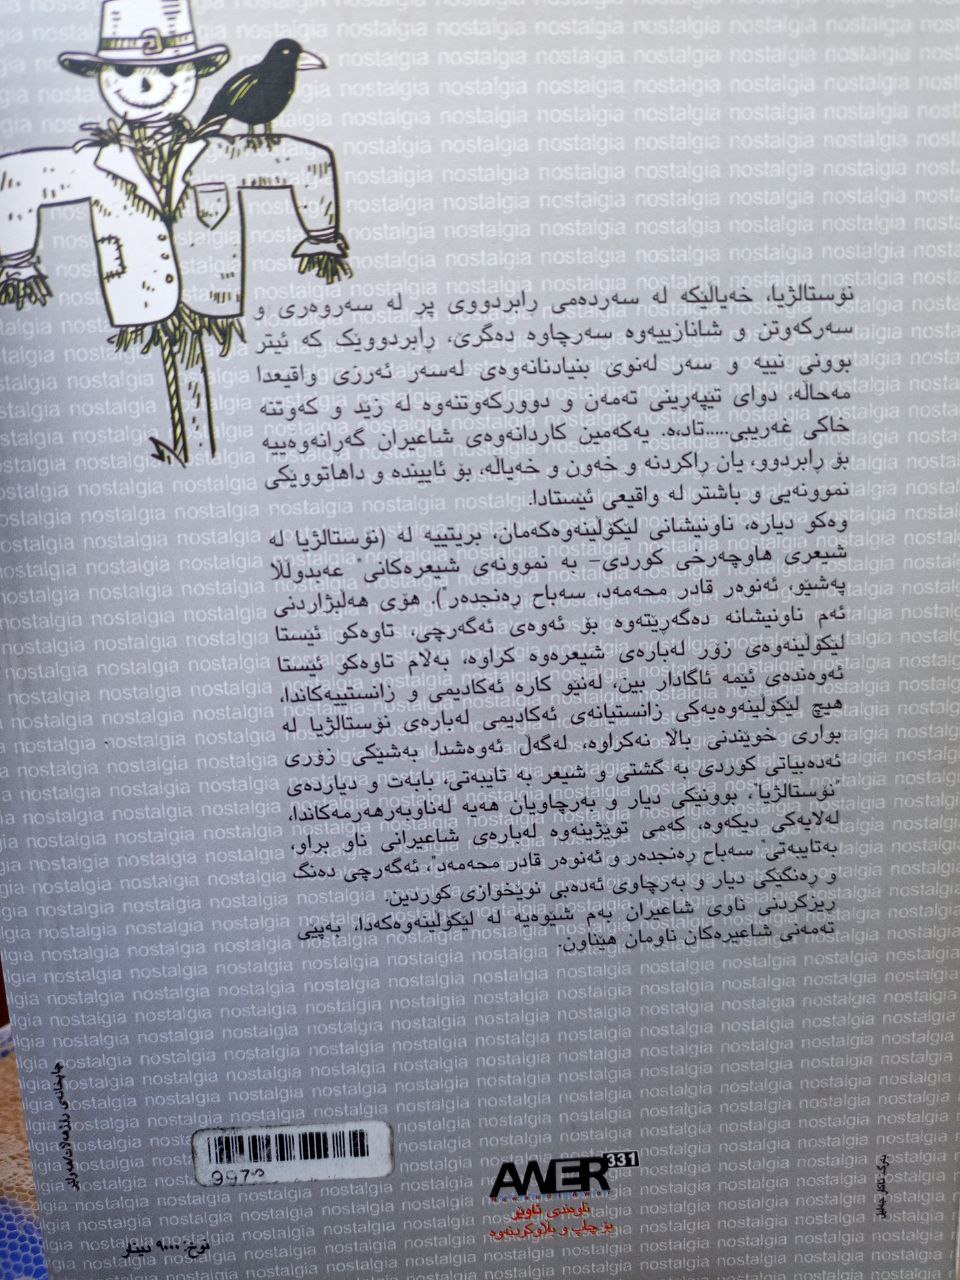 نۆستالژیا، خەیاڵێکە لە سەردەمی ڕابردووی پر لە سەروەری و
سەرکەوتن و شانازییەوە سەرچاوە دەگرێ، ڕابردوویێک کە ئیتر
بوونی نییە و سەر لەنوێ بنیادنانەوەی لەسەر ئەرزی واقیعدا
مەحاڵە، دوای تیپەڕینی تەمەن و دوورکەوتنەوە لە زید و کەوتنە
خاکی غەریبی.....تاد،ە. یەکەمین کاردانەوەی شاعیران گەڕانەوەییە
بۆ ڕابردوو، یان ڕاکردنە و خەون و خەیاڵە، بۆ ئاییندە و داهاتوویکی
نموونەیی و باشتر لە واقیعی ئێستادا.
وەکو دیارە، ناونیشانی لێکۆڵینەوەکەمان، بریتییە لە (نۆستالژیا لە
شیعری هاوچەرخی کوردی– بە نموونەی شیعرەکانی" عەبدوڵلا
پەشێو، ئەنوەر قادر محەمەد، سەباح ڕەنجدەر"). هۆی هەڵبژاردنی
ئەم ناونیشانە دەگەڕێتەوە بۆ ئەوەی ئەگەرچی، تاوەکو ئێستا
لێکۆڵینەوەی زۆر لەبارەی شیعرەوە کراوە، بەلام تاوەکو ئێستا
ئەوەندەی ئێمە ئاگادار بین، لەنیو کارە ئەکادیمی و زانستییەکاندا،
هیچ لێکۆڵینەوەیەکی زانستیانەی ئەکادیمی لەبارەی نۆستالژیا لە
بواری خوێندنی بالا نەکراوە، لەگەڵ ئەوەشدا بەشێکی زۆری
ئەدەبیاتی کوردی بە گشتی و شیعر بە تایبەتی، بابەت و دیاردەی
"نۆستالژیا"، بوونێکی دیار و بەرچاویان هەیە لەناوبەرهەرمەکاندا،
لەلایەکی دیکەوە، کەمی توێژینەوە لەبارەی شاعیرانی ناو براو،
بەتایبەتی" سەباح ڕەنجدەر و ئەنوەر قادر محەمەد"، ئەگەرچی دەنگ
و ڕەنگێکی دیار و بەرچاوی ئەدەبی نوێخوازی کوردین.
ڕیزکردنی ناوی شاعیران بەم شیوەیە لە لێکۆڵینەوەکەدا، بەپێی
تەمەنی شاعیرەکان ناومان هێناون.
چاپخانەی ڕۆژهەڵات/هەولێر
AWER 331
ناوەندی ئاوێر
بۆ چاپ و بڵاوکردنەوە
نرخ: ٩٠٠٠ دینار
nostalgia nostalgia nostalgia nostalgia